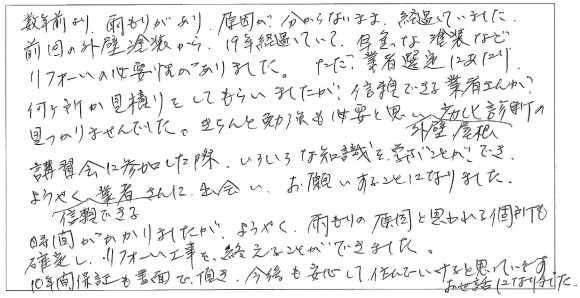 数年前より、雨もりがあり、原因が分からないまま、経過していました。
前回の外壁塗装から、19年経過していて、早急な塗装など
リフォームの必要性がありました。ただ、業者選定にあたり、
何ヶ所か見積りをしてもらいましたが、信頼できる業者さんが
見つかりませんでした。きちんと勉強も必要と思い、劣化診断の
外壁屋根
講習会に参加した際、いろいろな知識を学ぶことができ、
ようやく業者さんに出会い、お願いすることになりました。
信頼できる
時間がかかりましたが、ようやく、雨もりの原因と思われる個所も
確定し、リフォーム工事を、終えることができました。
10年間保証も書面で頂き、今後も安心して住んでいけると思っています。
お世話になりました。